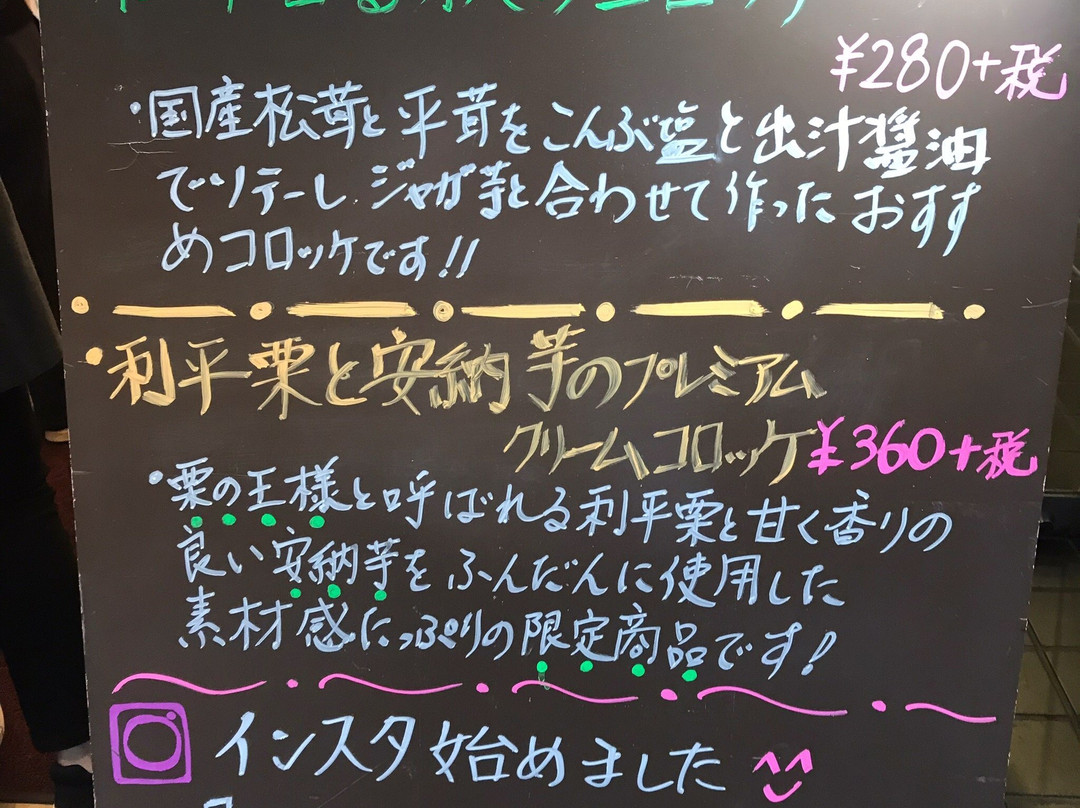 ¥280+税
・国産松茸と平茸をこんぶ塩と出汁醤油
でソテーし、ジャガ芋と合わせて作ったおすす
めコロッケです!!
・利平栗と安納芋のプレミアム
クリームコロッケ¥360+税
・栗の王様と呼ばれる利平栗と甘く香りの
良い安納芋をふんだんに使用した
素材感たっぷりの限定商品です!
インスタ始めました